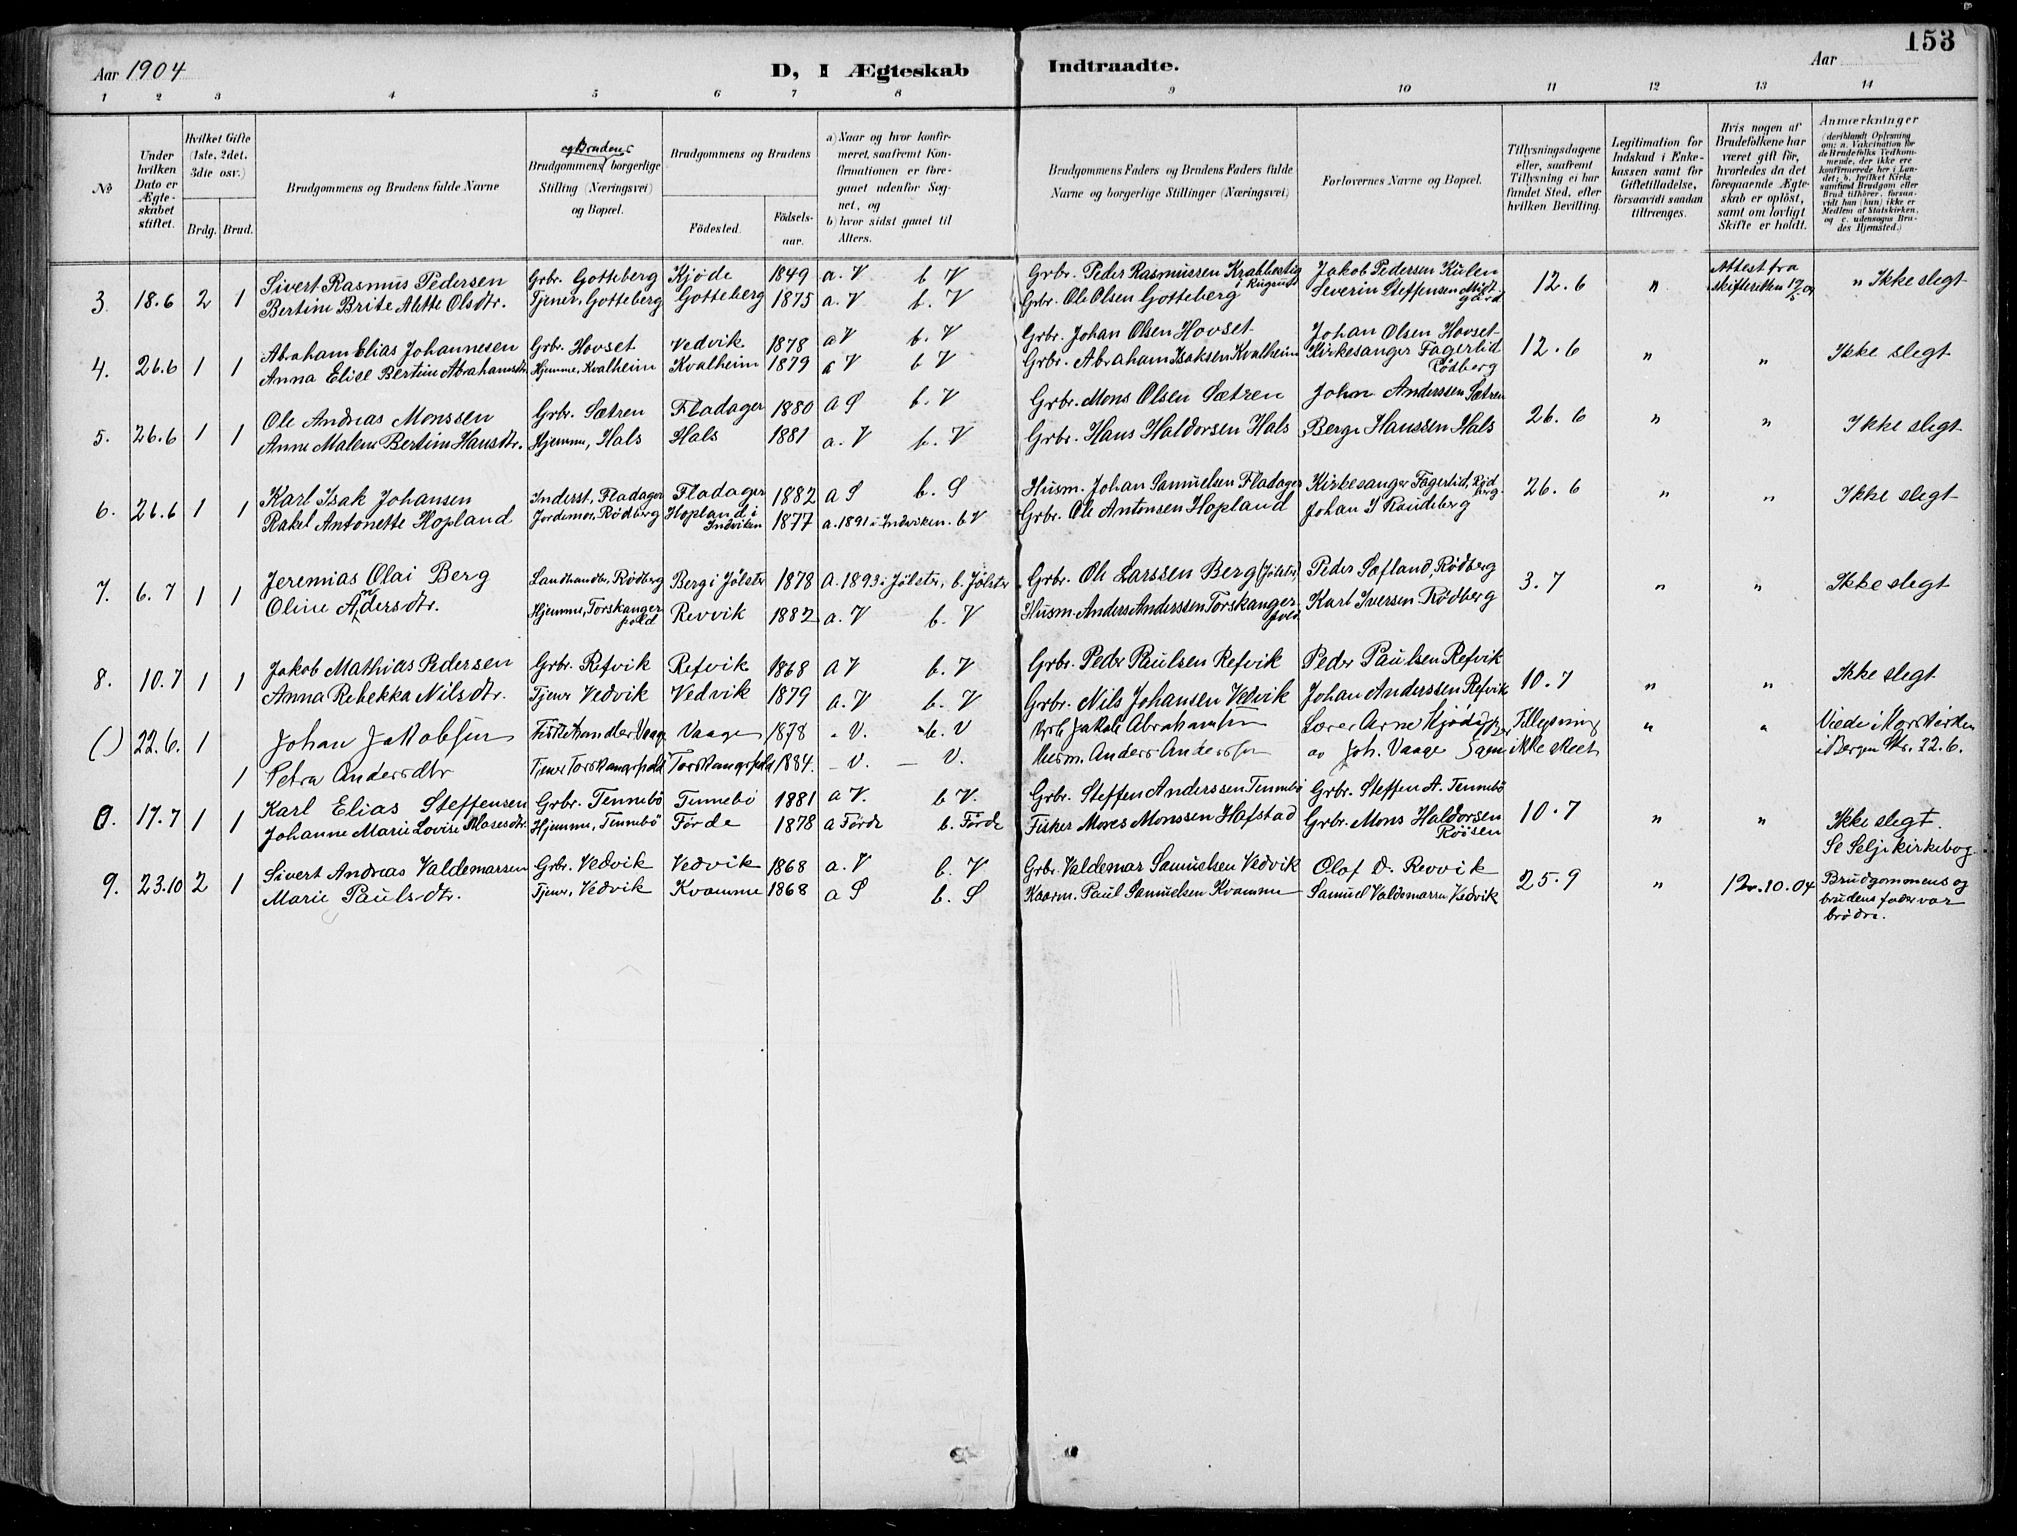 153
Aar 1904
D, I Ægteskab Indtraadte.
Aar
1 2 3 4 5 6 7 8 9 10 11 12 13 14
No
Under hvilken Dato er Ægteskabet stiftet.
Hvilket Gifte (1ste, 2det, 3die osv.)
Brdg. Brud.
Brudgommens og Brudens fulde Navne
Brudgommens og Brudens borgerlige Stilling (Næringsvei) og Bopæl.
Brudgommens og Brudens
Födested.
Födselsaar.
a) Naar og hvor konfirmeret, saafremt Konfirmationen er foregaaet udenfor Sognet, og
b) hvor sidst gaaet til Alters.
Brudgommens Faders og Brudens Faders fulde Navne og borgerlige Stillinger (Næringsvei)
Forlovernes Navne og Bopæl.
Tillysningsdagene eller, saafremt Tillysning ei har fundet Sted, efter hvilken Bevilling.
Legitimation for Indskud i Enkekassen samt for Giftetilladelse, forsaavidt saadan tiltrænges.
Hvis nogen af Brudefolkene har været gift för, hvorledes da det foregaaende Ægteskab er oplöst, samt om lovligt Skifte er holdt.
Anmærkninger
(deriblandt Oplysning om: a. Vakcination for de Brudefolks Vedkommende, der ikke ere konfirmerede her i Landet; b. hvilket Kirkesamfund Brudgom eller Brud tilhörer, forsaavidt han (hun) ikke er Medlem af Statskirken, og c. udensogns Brudes Hjemsted.)
3 18.6 2 1 Sivert Rasmus Pedersen Grbr. Gotteberg Kjøde 1849 a. V b. V Grbr. Peder Rasmussen Krabbestig i Rugsund Jakob Pedersen Kulen 12.6 " Attest fra skifteretten 17/5 04 " Ikke slegt
Bertine Brite Alette Olsdtr. Tjener, Gotteberg Gotteberg 1875 a. V b. V Grbr. Ole Olsen Gotteberg Severin Steffensen Midtgård
4. 26.6 1 1 Abraham Elias Johannesen Grbr. Hovset Vedvik 1878 a V b. V Grbr. Johan Olsen Hovset Johan Olsen Hovset 12.6 " " Ikke slegt
Anna Elise Bertine Abrahamsdtr. Hjemme, Kvalheim Kvalheim 1879 a V b V Grbr. Abraham Isaksen Kvalheim Kirkesanger Fagerlid Rødberg
5. 26.6 1 1 Ole Andreas Monssen Grbr. Sætren Fladager 1880 a S b. V Grbr. Mons Olsen Sætren John Anderssen Sætren 26.6 " " Ikke slegt
Anne Malene Bertine Hansdtr. Hjemme, Hals Hals 1881 a. V b. V Grbr. Hans Haldorsen Hals Berge Hanssen Hals
6. 26.6 1 1 Karl Isak Johansen Inderst, Fladager Fladager 1882 a S b. S Husm. Johan Samuelsen Fladager Kirkesanger Fagerlid, Rødberg. 26.6 " " Ikke slegt
Rakel Antonette Hopland Jordemor, Rødberg Hopland i Indviken 1877 a. 1891 i Indviken. b. V Grbr. Ole Antonsen Hopland Johan J Raudeberg
7. 6.7 1 1 Jeremias Olai Berg Landhandler, Rødberg Berg i Jølster 1878 a. 1893 i Jølster, b. Jølster Grbr. Ole Larssen Berg (Jølster) Peder Sæfland, Rødberg 3.7 " " Ikke slegt
Oline Andersdtr. Hjemme, Torskangerpold Revvik 1882 a. V b. V Husm. Anders Anderssen Torskangerpold Karl Iversen Rødberg
8. 10.7 1 1 Jakob Mathias Pedersen Grbr. Refvik Refvik 1868 a V b. V Grbr. Peder Paulsen Refvik Peder Paulsen Refvik 10.7 " " Ikke slegt
Anna Rebekka Nilsdtr. Tjener Vedvik Vedvik 1879 a. V b. V Grbr. Nils Johansen Vedvik Johan Anderssen Refvik
() 22.6. 1 Johan Jakobsen Fiskehandler Vaage Vaage 1878 - V. - b. V Jakob Abrahamsen Lærer Arne Kjöde Tillysning " " Viede i Korskirken
1 Petra Andersdtr Tjener Torskangerpold Torskangerpold 1884. - V. - V. Husm. Anders Andersen av Joh. Vaage ikke skeet i Bergen 22.6.
0. 17.7 1 1 Karl Elias Steffensen Grbr. Tennebö Tennebö 1881 a V. b V. Grbr. Steffen Anderssen Tennebö Grbr. Steffen A. Tennebö 10.7 " " Ikke slegt.
Johanne Marie Lovise Mosesdtr. Hjemme, Tennebö Førde 1878 a Førde b. Førde Fisker Moses Monssen Hafstad Grbr. Mons Haldorsen Røisen Se Selje kirkebog
9. 23.10 2 1 Sivert Andreas Valdemarsen Grbr. Vedvik Vedvik 1868 a. V b. V Grbr. Valdemar Samuelsen Vedvik Olaf D. Revvik 25.9 " 12.10.04 Brudgommens og brudens fader var brødre.
Marie Paulsdtr. Tjener, Vedvik Kvamme 1868 a S b. S Kaarm. Paul Samuelsen Kvamme Samuel Valdemarsen Vedvik